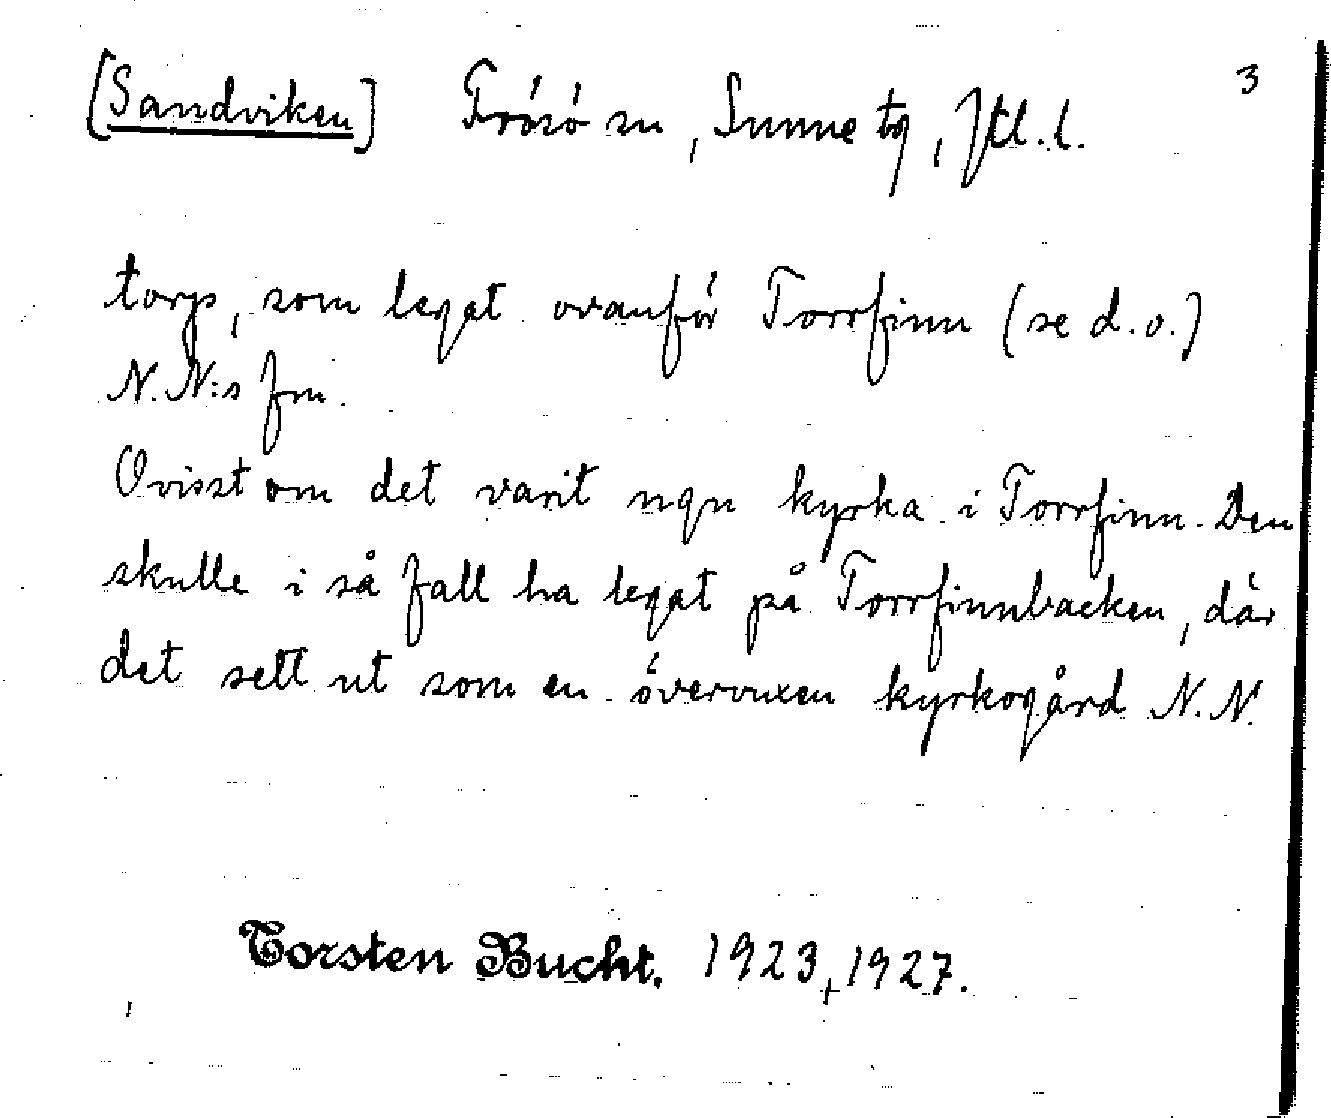 3
[Sandviken] Frösö sn, Sunne tg, Jtl. l.
torp, som legat ovanför Torrfinn (se d.o.)
N.N:s fm.
Ovisst om det varit ngn kyrka i Torrfinn. Den
skulle i så fall ha legat på Torrfinnbacken, där
det sett ut som en övervuxen kyrkogård N.N.
Torsten Bucht. 1923, 1927.